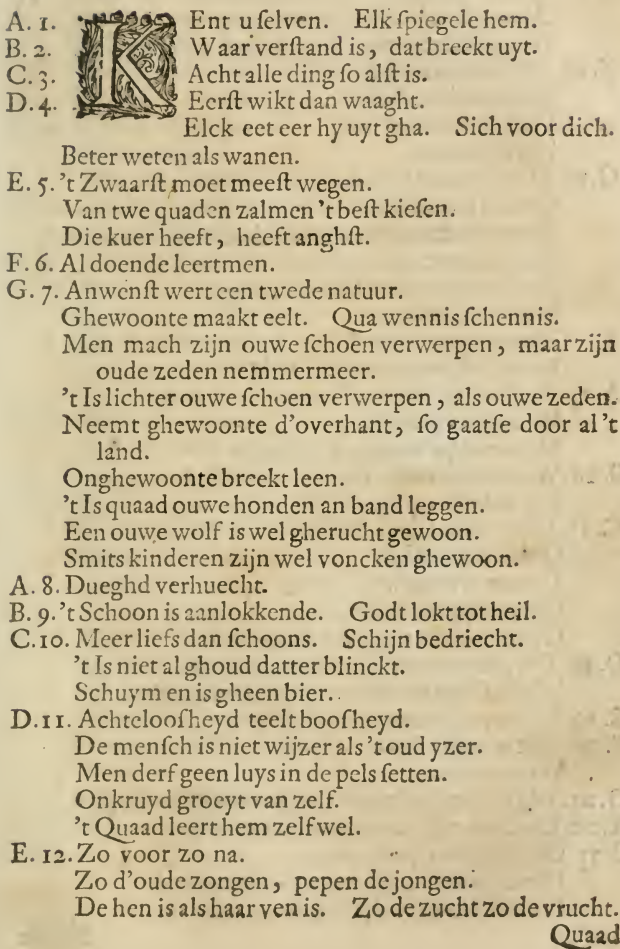 A. 1. KEnt u ſelven. Elk ſpiegele hem.
B. 2. Waar verſtand is, dat breekt uyt.
C. 3. Acht alle ding ſo alſt is.
D. 4. Eerſt wikt dan waaght.
Elck eet eer hy uyt gha. Sich voor dich.
Beter weten als wanen.
E. 5. 't Zwaarſt moet meeſt wegen.
Van twe quaden zalmen 't beſt kieſen.
Die kuer heeft, heeft anghſt.
F. 6. Al doende leertmen.
G. 7. Anwenſt wert een twede natuur.
Ghewoonte maakt eelt. Qua wennis ſchennis.
Men mach zijn ouwe ſchoen verwerpen, maar zijn
oude zeden nemmermeer.
't Is lichter ouwe ſchoen verwerpen, als ouwe zeden.
Neemt ghewoonte d'overhant, ſo gaatſe door al 't
land.
Onghewoonte breekt leen.
't Is quaad ouwe honden an band leggen.
Een ouwe wolf is wel gherucht gewoon.
Smits kinderen zijn wel voncken ghewoon.
A. 8. Dueghd verhuecht.
B. 9. 't Schoon is aanlokkende. Godt lokt tot heil.
C. 10. Meer liefs dan ſchoons. Schijn bedriecht.
't Is niet al ghoud datter blinckt.
Schuym en is gheen bier.
D. 11. Achteloofheyd teelt boofheyd.
De menſch is niet wijzer als 't oud yzer.
Men derf geen luys in de pels ſetten.
Onkruyd groeyt van zelf.
't Quaad leert hem zelf wel.
E. 12. Zo voor zo na.
Zo d'oude zongen, pepen de jongen.
De hen is als haar ven is. Zo de zucht zo de vrucht.
Quaad